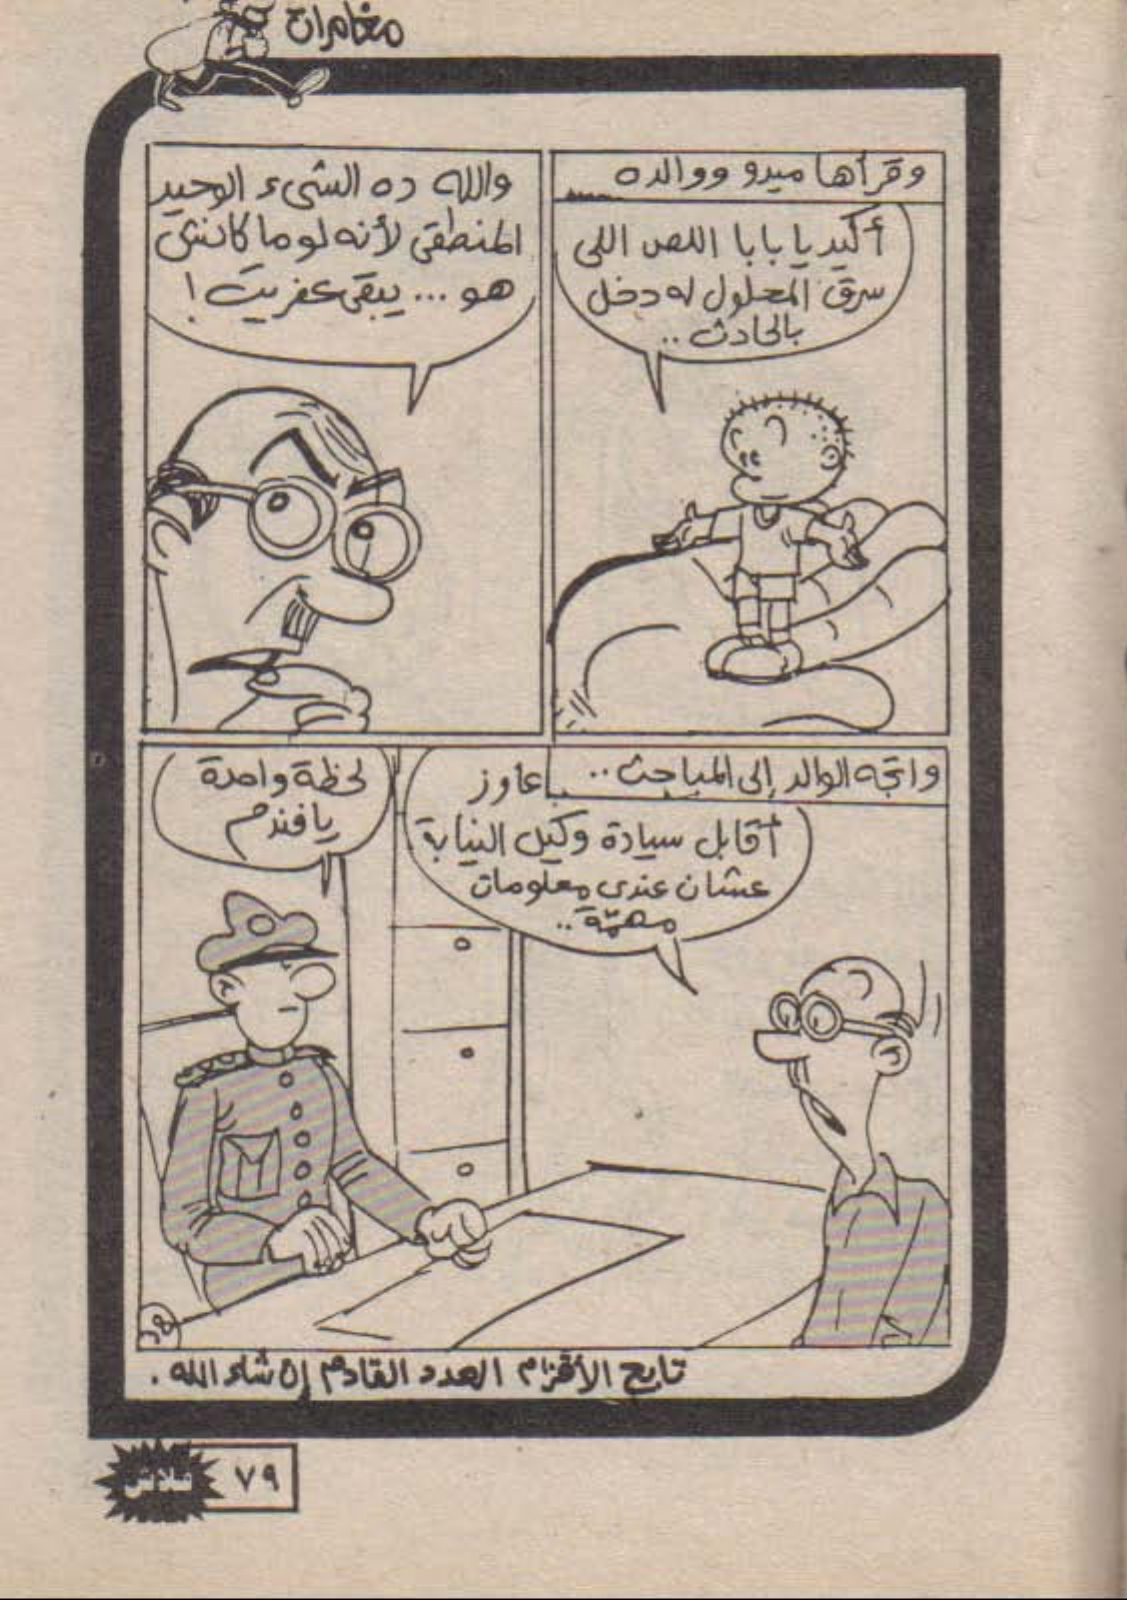 مغامرات
وقرأها ميدو ووالده
أكيد يا بابا اللص اللى
سرق المحلول له دخل
بالحادث..
والله ده الشىء الوحيد
المنطقى لأنه لو ما كانش
هو... يبقى عفريت!
واتجه الوالد إلى المباحث..
عاوز
أقابل سيادة وكيل النيابة
عشان عندى معلومات
مهمّة..
لحظة واحدة
يافندم
تابع الأقزام العدد القادم إن شاء الله.
٧٩
فلاش